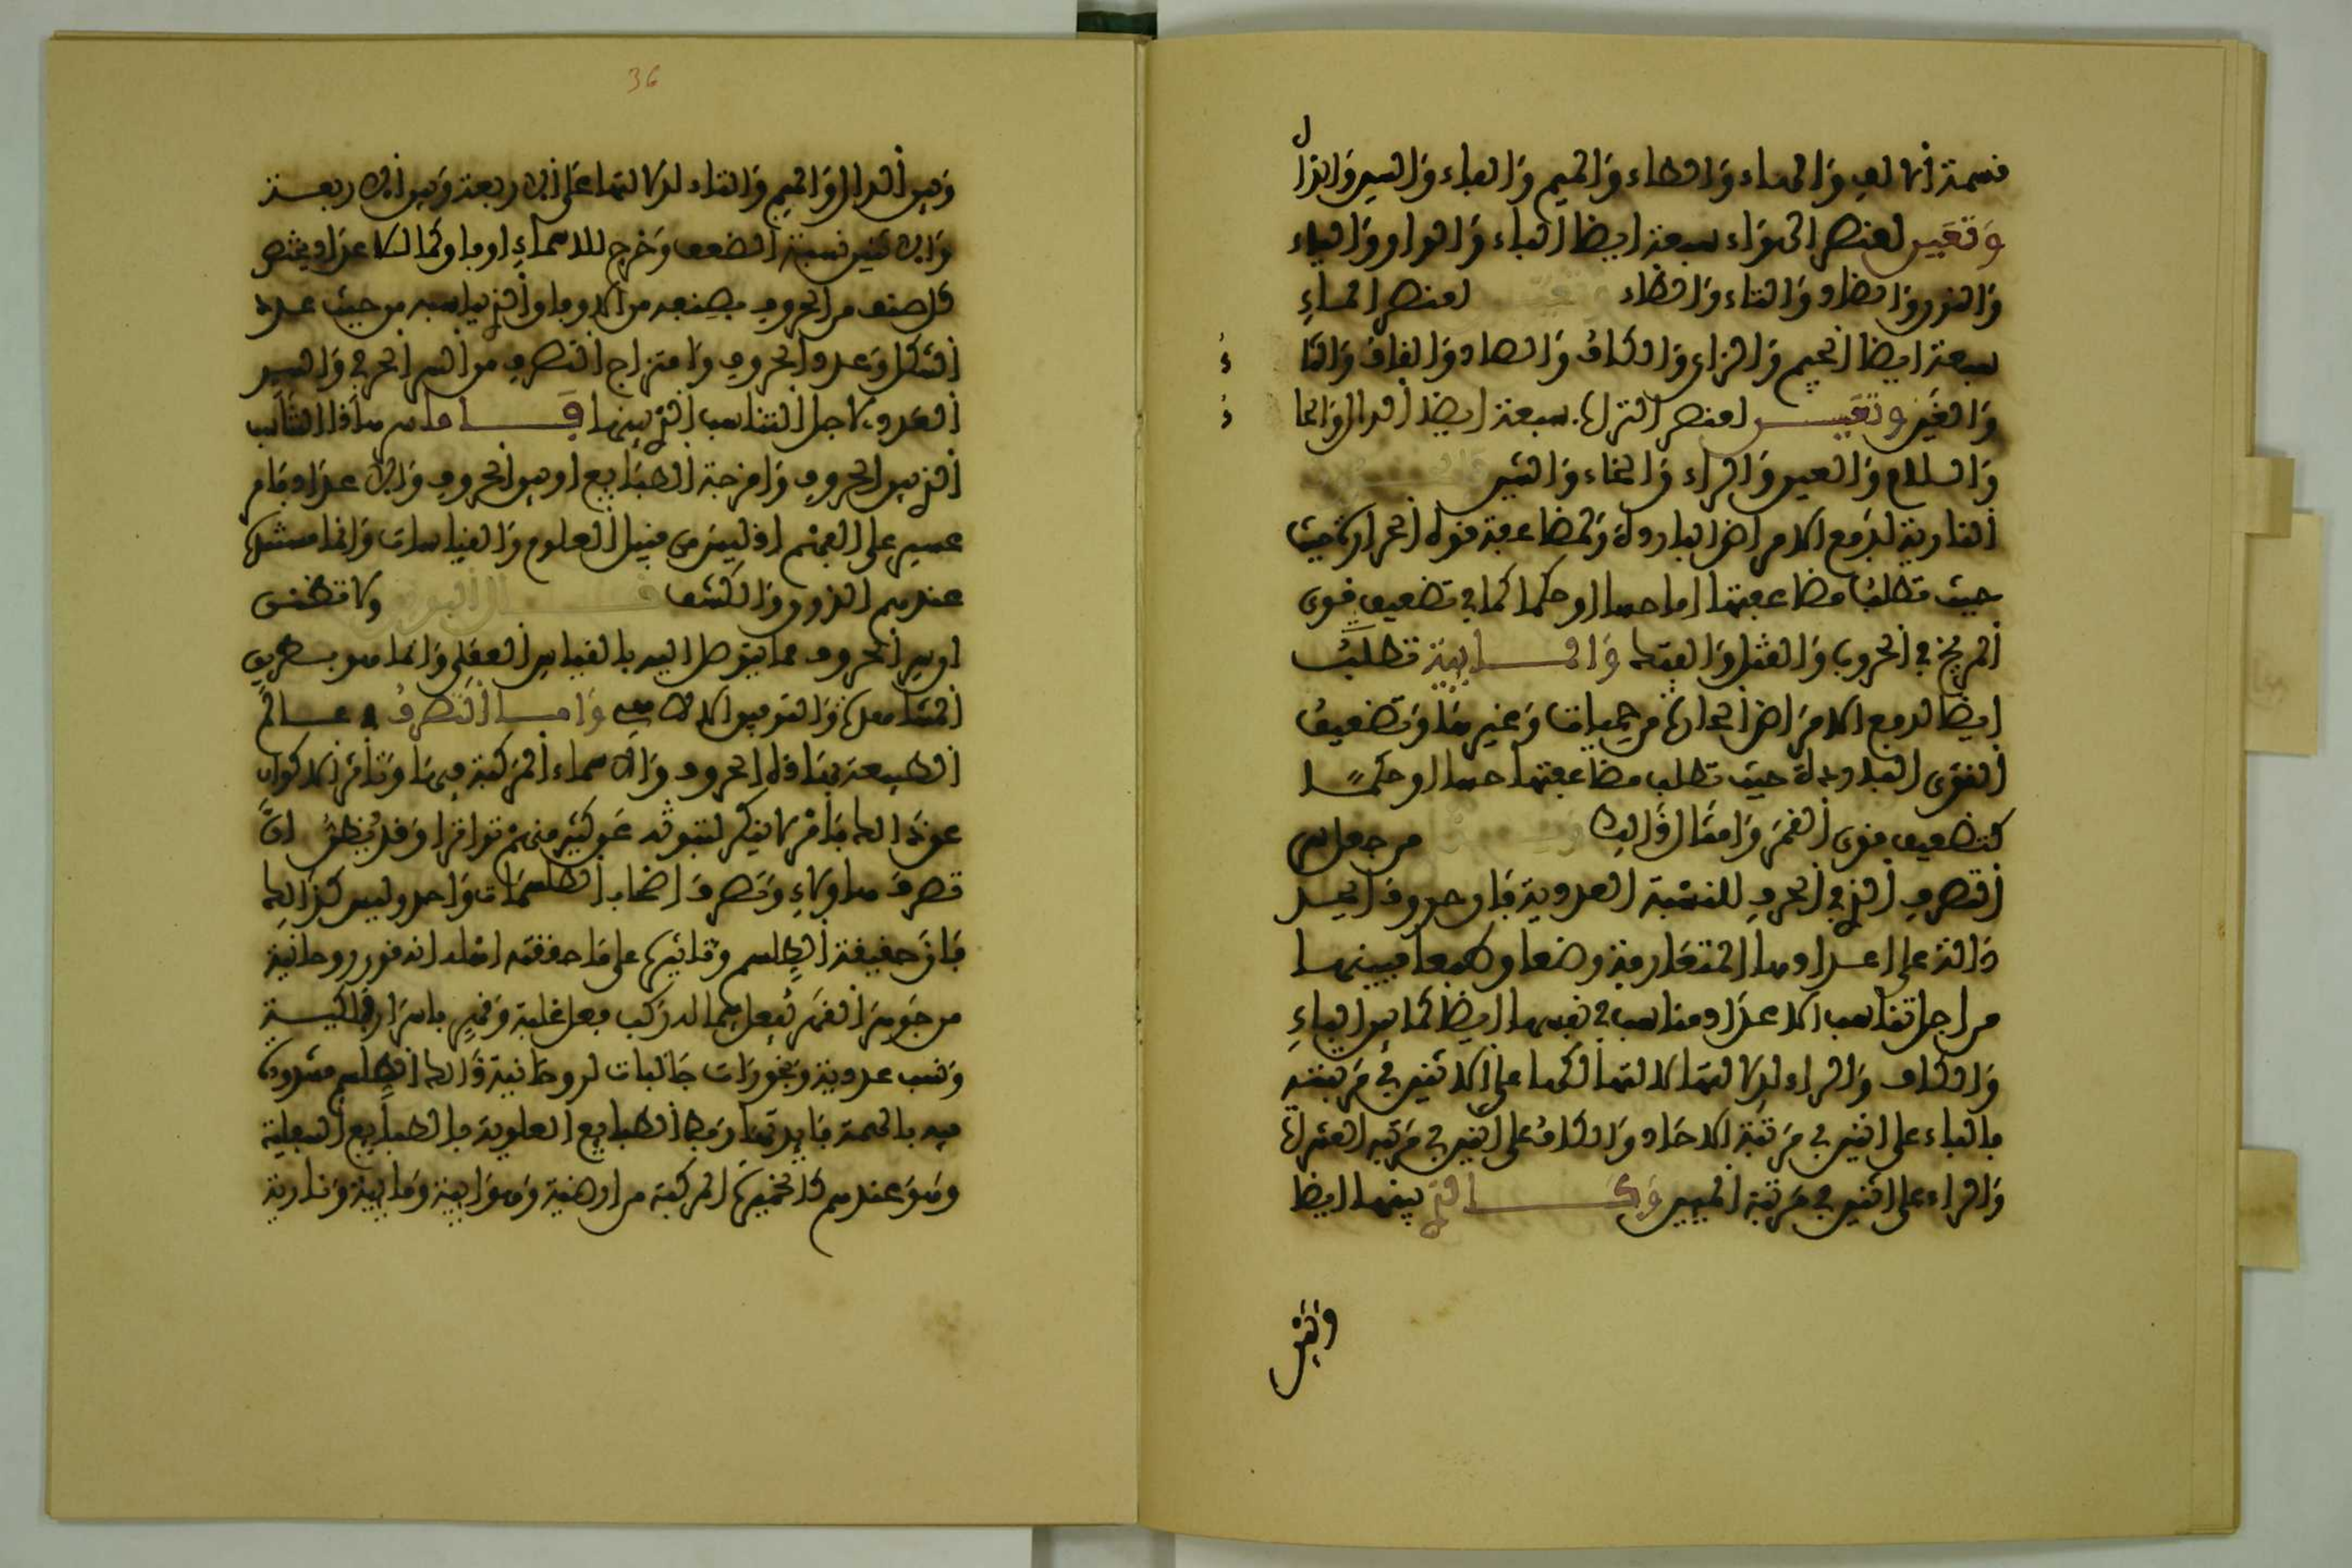 قسمة الالف والهاء والطاء والميم والفاء والسين والذال
وتعين لعنصر الهواء سبعة ايضا الباء والواو والياء
والنون والضاد والتاء والظاء لعنصر الماء
سبعة ايضا الجيم والزاي والكاف والصاد والقاف والثا
والغين وتعين لعنصر التراب سبعة ايضا الدال والحا
واللام والعين والراء والخاء والشين
النارية لدفع الامراض الباردة ولمضاعفة قوة الحرارة حيث
حيث تطلب مضاعفتها اما حسا او حكما كما في تضعيف قوى
المريخ في الحروب والقتل والفتك والمايية تطلب
ايضا لدفع الامراض الحارة من حميات وغيرها وتضعيف
القوى الباردة حيث تطلب مضاعفتها حسا او حكما
كتضعيف قوى القمر وامثال ذالك من جعل سر
التصرف الذي في الحرف للنسبة العددية فان حروف ابجد
دالة على اعدادها المتعارفة وضعا وطبعا فبينها
من اجل تناسب الاعداد مناسب في نفسها ايضا كما بين الباء
والكاف والراء لدلالتها كلها على الاثنين في مرتبته
فالباء على اثنين في مرتبة الاحاد والكاف على اثنين في مرتبة العشرات
والراء على اثنين في مرتبة الميين وكالتي بينها ايضا
وبين
36
وبين الدال والميم والتاء لدلالتها على الاربعة وبين الاربعة
والاثنين نسبة الضعف وخرج للاسماء اوفاق كما للاعداد يختص
كل صنف من الحروف بصنف من الاوفاق الذي يناسبه من حيث عدد
الشكل وعدد الحروف وامتزاج التصرف من السر الحرفي والسر
العددي لاجل التناسب الذي بينها فاما سر هاذا التناسب
الذي بين الحروف وامزجة الطبايع او بين الحروف والاعداد فامر
عسير على الفهم اذ ليس من قبيل العلوم والقياسات وانما مستندها
عندهم الذوق والكشف قال البوني ولا تظنن
ان سر الحروف مما يتوصل اليه بالقياس العقلي وانما هو بطريق
المشاهدة والتوفيق الالاهي واما التصرف في عالم
الطبيعة بهاذه الحروف والاسماء المركبة فيها وتاثر الاكوان
عن ذالك فامر لا ينكر لثبوته عن كثير منهم تواترا وقد يظن ان
تصرف هاولاء وتصرف اصحاب الطلسمات واحد وليس كذالك
فان حقيقة الطلسم وتاثيره على ما حققه اهله انه قوة روحانية
من جوهر القهر تفعل فيما له ركب فعل غلبة وقهر باسرار فلكية
ونسب عددية وبخورات جالبات لروحانية ذالك الطلسم مشدودة
فيه بالهمة فايدتها ربط الطبايع العلوية بالطبايع السفلية
وهو عندهم كالخميرة المركبة من ارضية وهوايية ومايية ونارية